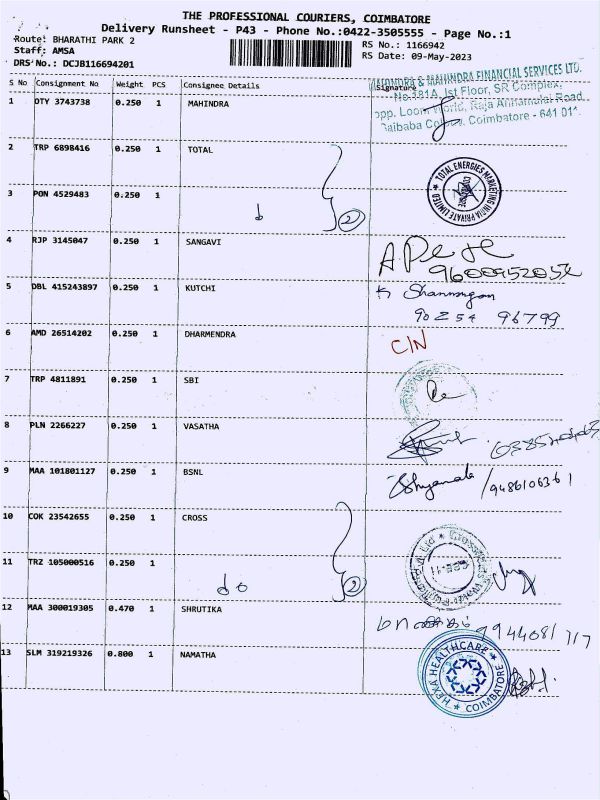 THE PROFESSIONAL COURIERS, COIMBATORE
Delivery Runsheet - P43 - Phone No.:0422-3505555 - Page No.:1
Route: BHARATHI PARK 2
Staff: AMSA
DRS No.: DCJB116694201
RS No.: 1166942
RS Date: 09-May-2023
S No Consignment No Weight PCS Consignee Details Signature
MAHINDRA & MAHINDRA FINANCIAL SERVICES LTD.
No.181A, Ist Floor, SR Complex,
opp. Loom World, Raja Annamalai Road,
Saibaba Colony, Coimbatore - 641 011.
1 DTY 3743738 0.250 1 MAHINDRA
2 TRP 6898416 0.250 1 TOTAL
TOTAL ENERGIES MARKETING INDIA PRIVATE LIMITED
3 PON 4529483 0.250 1
2
4 RJP 3145047 0.250 1 SANGAVI
5 DBL 415243897 0.250 1 KUTCHI
K Shanmugam
90254 96799
6 AMD 26514202 0.250 1 DHARMENDRA
C/N
7 TRP 4811891 0.250 1 SBI
8 PLN 2266227 0.250 1 VASATHA
9 MAA 101801127 0.250 1 BSNL
Shyamala /9486106361
10 COK 23542655 0.250 1 CROSS
11 TRZ 105000516 0.250 1
do 2
12 MAA 300019305 0.470 1 SHRUTIKA
9944081717
13 SLM 319219326 0.800 1 NAMATHA
HEXA HEALTHCARE
COIMBATORE